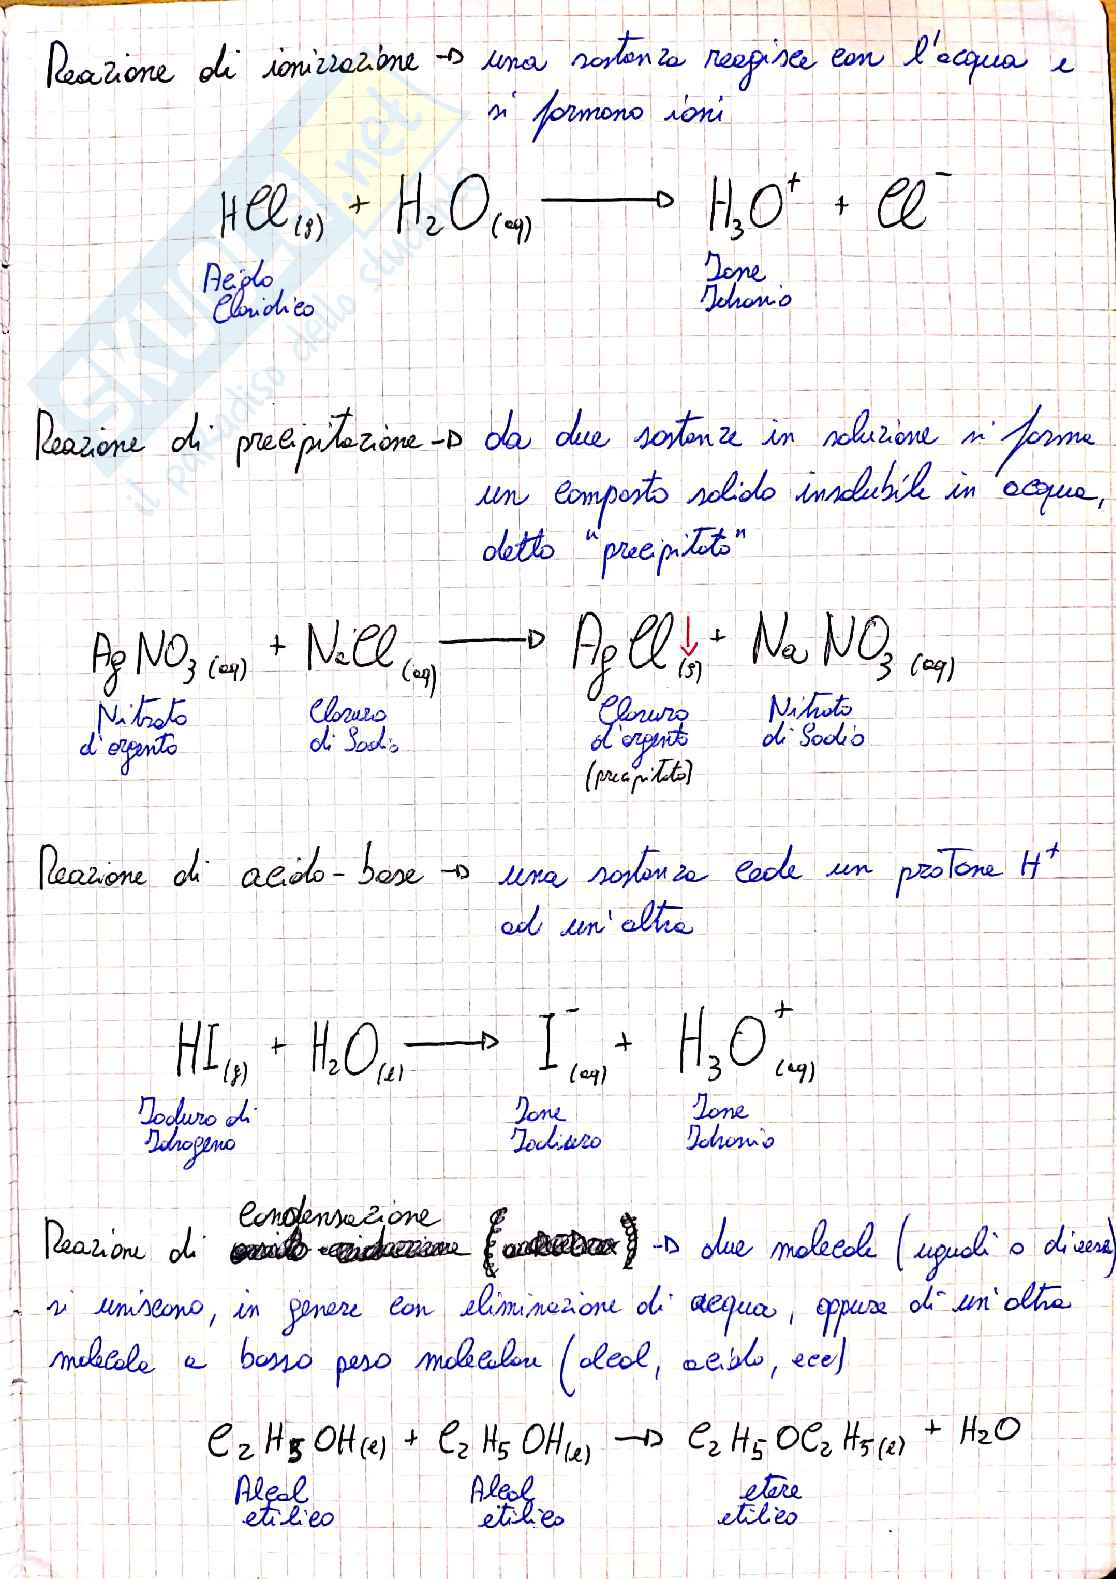 Reazione di ionizzazione → una sostanza reagisce con l'acqua e
si formono ioni
HCl(g) + H₂O(aq) → H₃O⁺ + Cl⁻
Acido Ione
Cloridico Idronio
SKUOLA.net
il paradiso dello studente
Reazione di precipitazione → da due sostanze in soluzione si forma
un composto solido insolubile in acqua,
detto "precipitato"
AgNO₃(aq) + NaCl(aq) → AgCl↓(s) + NaNO₃(aq)
Nitrato Cloruro Cloruro Nitrato
d'argento di Sodio d'argento di Sodio
(precipitato)
Reazione di acido-base → una sostanza cede un protone H⁺
ad un'altra
HI(g) + H₂O(l) → I⁻(aq) + H₃O⁺(aq)
Ioduro di Ione Ione
Idrogeno Iodiuro Idronio
condensazione
Reazione di → due molecole (uguali o diverse)
si uniscono, in genere con eliminazione di acqua, oppure di un'altra
molecola a basso peso molecolare (alcol, acido, ecc)
C₂H₅OH(l) + C₂H₅OH(l) → C₂H₅OC₂H₅(l) + H₂O
Alcol Alcol etere
etilico etilico etilico